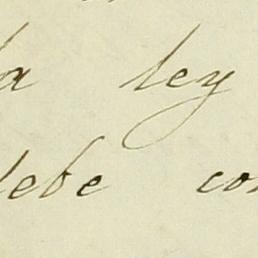 la ley
debe con